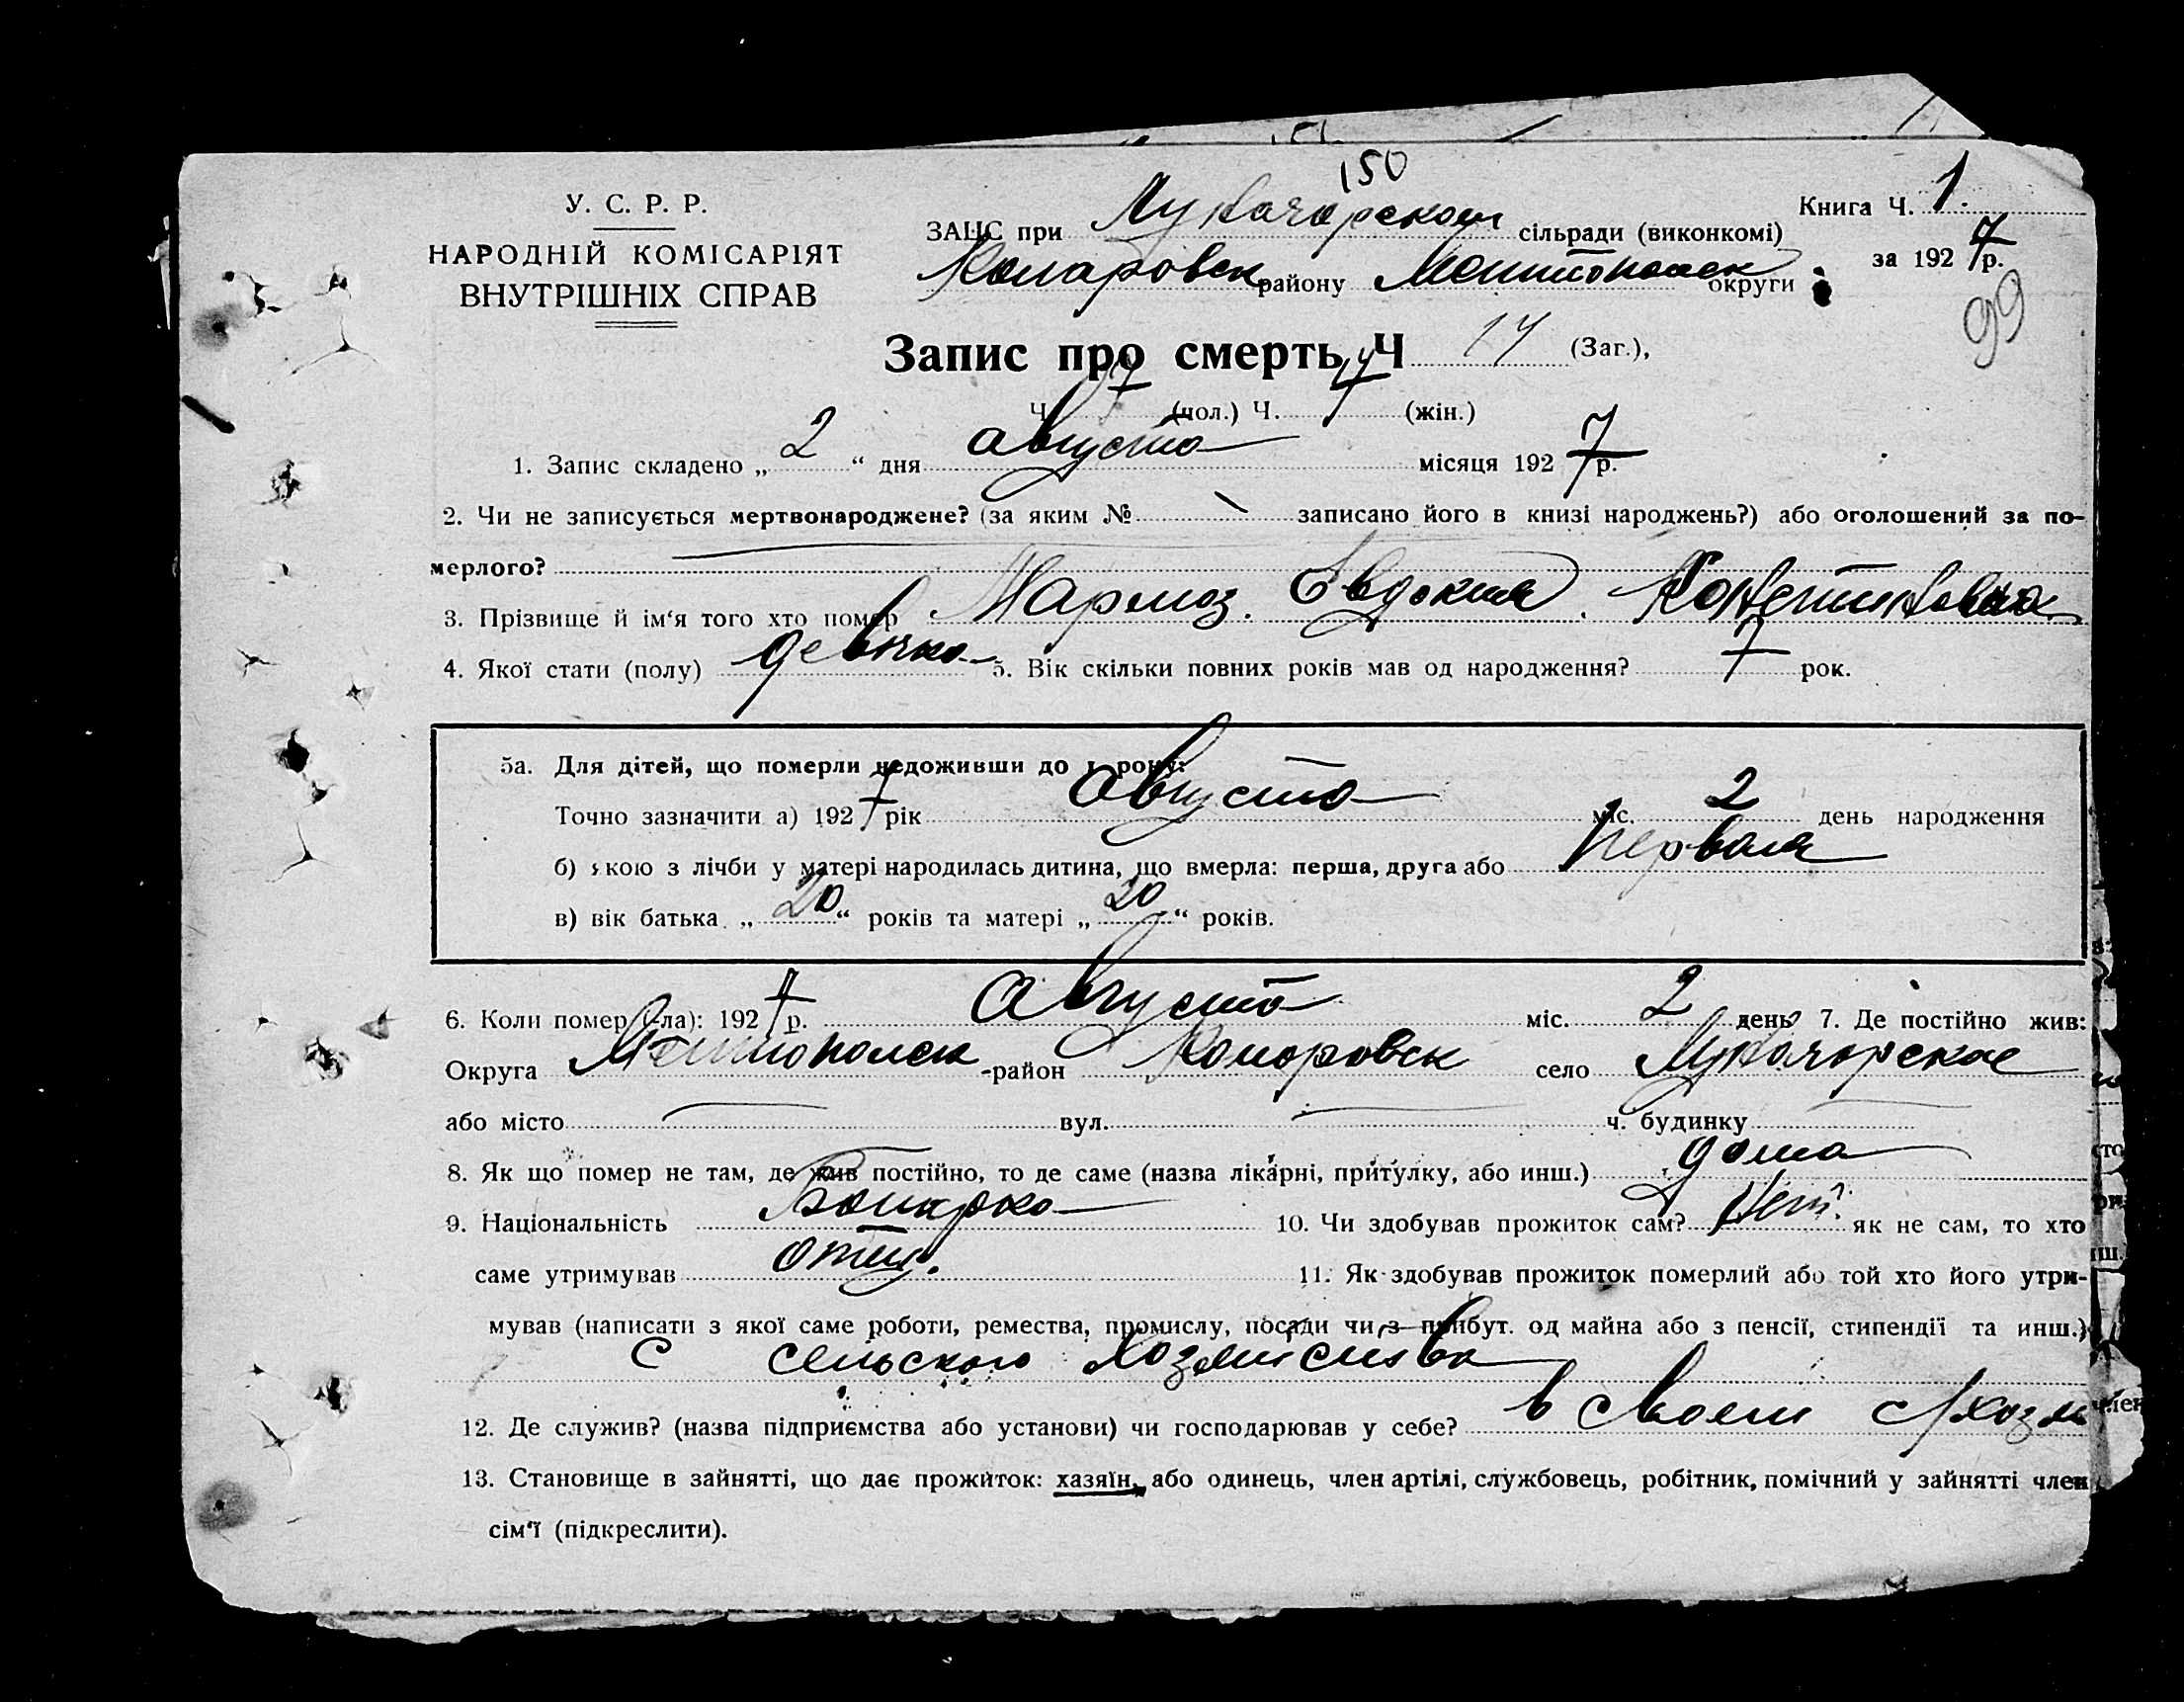 150
У. С. Р. Р.
НАРОДНІЙ КОМІСАРІЯТ
ВНУТРІШНІХ СПРАВ
ЗАЦС при Луначарском сільради (виконкомі)
Комаровск району Мелитопольск округи
Книга Ч. 1.
за 1927 р.
99
Запис про смерть Ч 14 (Заг.),
Ч. 7 (чол.) Ч. 7 (жін.)
1. Запис складено „ 2 “ дня августа місяця 1927 р.
2. Чи не записується мертвонароджене? (за яким № записано його в книзі народжень?) або оголошений за по-
мерлого?
3. Прізвище й ім‘я того хто помер Мармоз. Евдокия. Константиновна
4. Якої стати (полу) девочка 5. Вік скільки повних років мав од народження? 7 рок.
5а. Для дітей, що померли недоживши до 1 року:
Точно зазначити а) 1927 рік августа міс. 2 день народження
б) якою з лічби у матері народилась дитина, що вмерла: перша, друга або первая
в) вік батька „ 20 “ років та матері „ 20 “ років.
6. Коли помер (-ла): 1927 р. августа міс. 2 день 7. Де постійно жив:
Округа Мелитопольск -район Комаровск село Луначарское
або місто вул. ч. будинку
8. Як що помер не там, де жив постійно, то де саме (назва лікарні, притулку, або инш.) дома
9. Національність Болгарка 10. Чи здобував прожиток сам? Нет. як не сам, то хто
саме утримував отец. 11. Як здобував прожиток померлий або той хто його утри-
мував (написати з якої саме роботи, ремества, промислу, посади чи з прибут. од майна або з пенсії, стипендії та инш.)
с сельского хозяйства
12. Де служив? (назва підприємства або установи) чи господарював у себе? в своем с/хозяй
13. Становище в зайнятті, що дає прожиток: хазяїн, або одинець, член артілі, службовець, робітник, помічний у зайнятті член
сім‘ї (підкреслити).